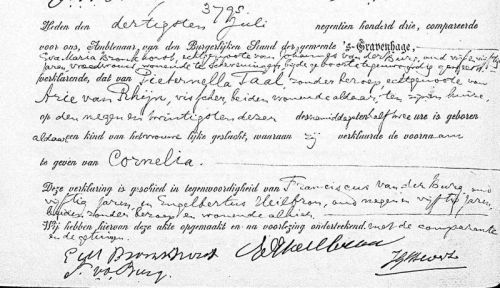 3795.
Heden den dertigsten Juli negentien honderd drie, compareerde
voor ons, Ambtenaar van den Burgerlijken Stand der gemeente 's-Gravenhage,
Eva Maria Bronkhorst, echtgenoote van Johannes van der Burg, oud vijf en vijftig
jaren, vroedvrouw, wonende te Scheveningen, bij de geboorte tegenwoordig geweest,
verklarende, dat van Pieternella Taal, zonder beroep, echtgenoote van
Arie van Rhijn, visscher, beiden wonende aldaar, ten zijnen huize,
op den negen en twintigsten dezer des namiddags ten half twee ure is geboren
aldaar een kind van het vrouwelijke geslacht, waaraan zij verklaarde de voornaam
te geven van Cornelia.
Deze verklaring is geschied in tegenwoordigheid van Franciscus van der Burg, oud
vijftig jaren, en Engelbertus Heilbron, oud negen en vijftig jaren,
beiden zonder beroep en wonende alhier.
Wij hebben hiervan deze akte opgemaakt en na voorlezing onderteekend met de comparante
en de getuigen.
E M Bronkhorst
F. v. d. Burg